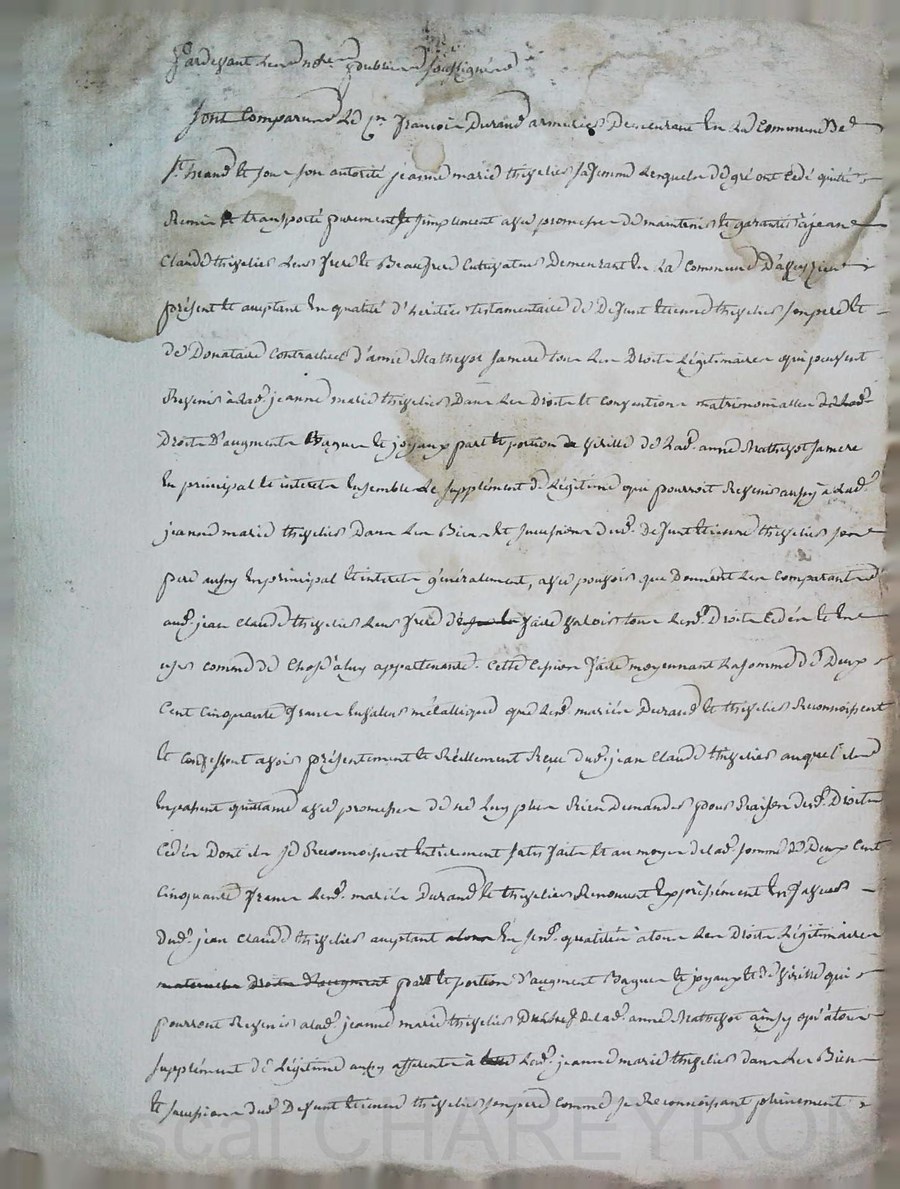 Pardevant les no.res publics soussignés
Sont Comparus Le C.en françois Durand armurier Demeurant En La Commune De
S.t heand Et sous son autorité jeanne marie thivelier sa femme Lesquels de gré ont Cedé quitté
Remis Et transporté purement Et simplement avec promesse de maintenir Et garantir à jean
Claude thivelier Leur frere Et Beaufrere Cultivateur Demeurant En La Commune
présent Et acceptant En qualité d'héritier testamentaire de Defunt Etienne thivelier son pere Et
de Donataire Contractuel d'anne Mathevot sa mere tous Les Droits Légitimaires qui peuvent
Revenir à Lad. jeanne marie thivelier Dans Les Droits Et Conventions matrimonialles de Lad.
Droits D'augment Bagues Et joyaux part Et portion de virille de Lad. anne Mathevot sa mere
En principal Et interets Ensemble Le Supplément de Légitime qui pourroit Revenir aussy à Lad.
jeanne marie thivelier Dans Les Biens Et successions dud. Defunt Etienne thivelier son
pere aussy En principal Et interets généralement, avec pouvoir que Donnent Les Comparants
aud. jean Claude thivelier Leur frere de faire valoir tous Lesd. Droits Cedés Et En
user comme de Chose à luy appartenante. Cette Cession faite moyennant La somme de Deux
Cent Cinquante francs En valeur métallique que Lesd. mariés Durand Et thivelier Reconnoissent
Et Confessent avoir présentement Et Réellement Reçue dud. jean Claude thivelier auquel ils
En passent quittance avec promesses de ne Luy plus Rien Demander pour Raison desd. Droits
Cedés Dont ils se Reconnoissent Entierement satisfaits Et au moyen de Lad. somme de Deux Cent
Cinquante francs Lesd. mariés Durand Et thivelier Renoncent Expressément En faveur
dud. jean Claude thivelier acceptant En sesd. qualités à tous Les Droits Légitimaires
maternels Droits d'augment part Et portion d'augment Bagues Et joyaux Et de virille qui
pourront Revenir à Lad. jeanne marie thivelier Du Chef de Lad. anne Mathevot ainsy qu'à tous
supplément de Légitime aussy afferents à Lad. jeanne marie thivelier dans Les Biens
Et successions dud. Defunt Etienne thivelier son pere Comme se Reconnoissant pleinement
scal CHAREYRON